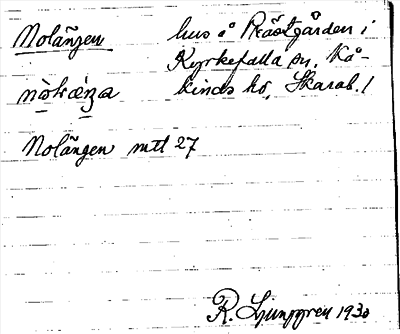 Molängen hus å Prästgården i
Kyrkefalla sn, Kå-
kinds hd, Skarab. l
Nolängen mtl 27
R. Ljunggren 1930